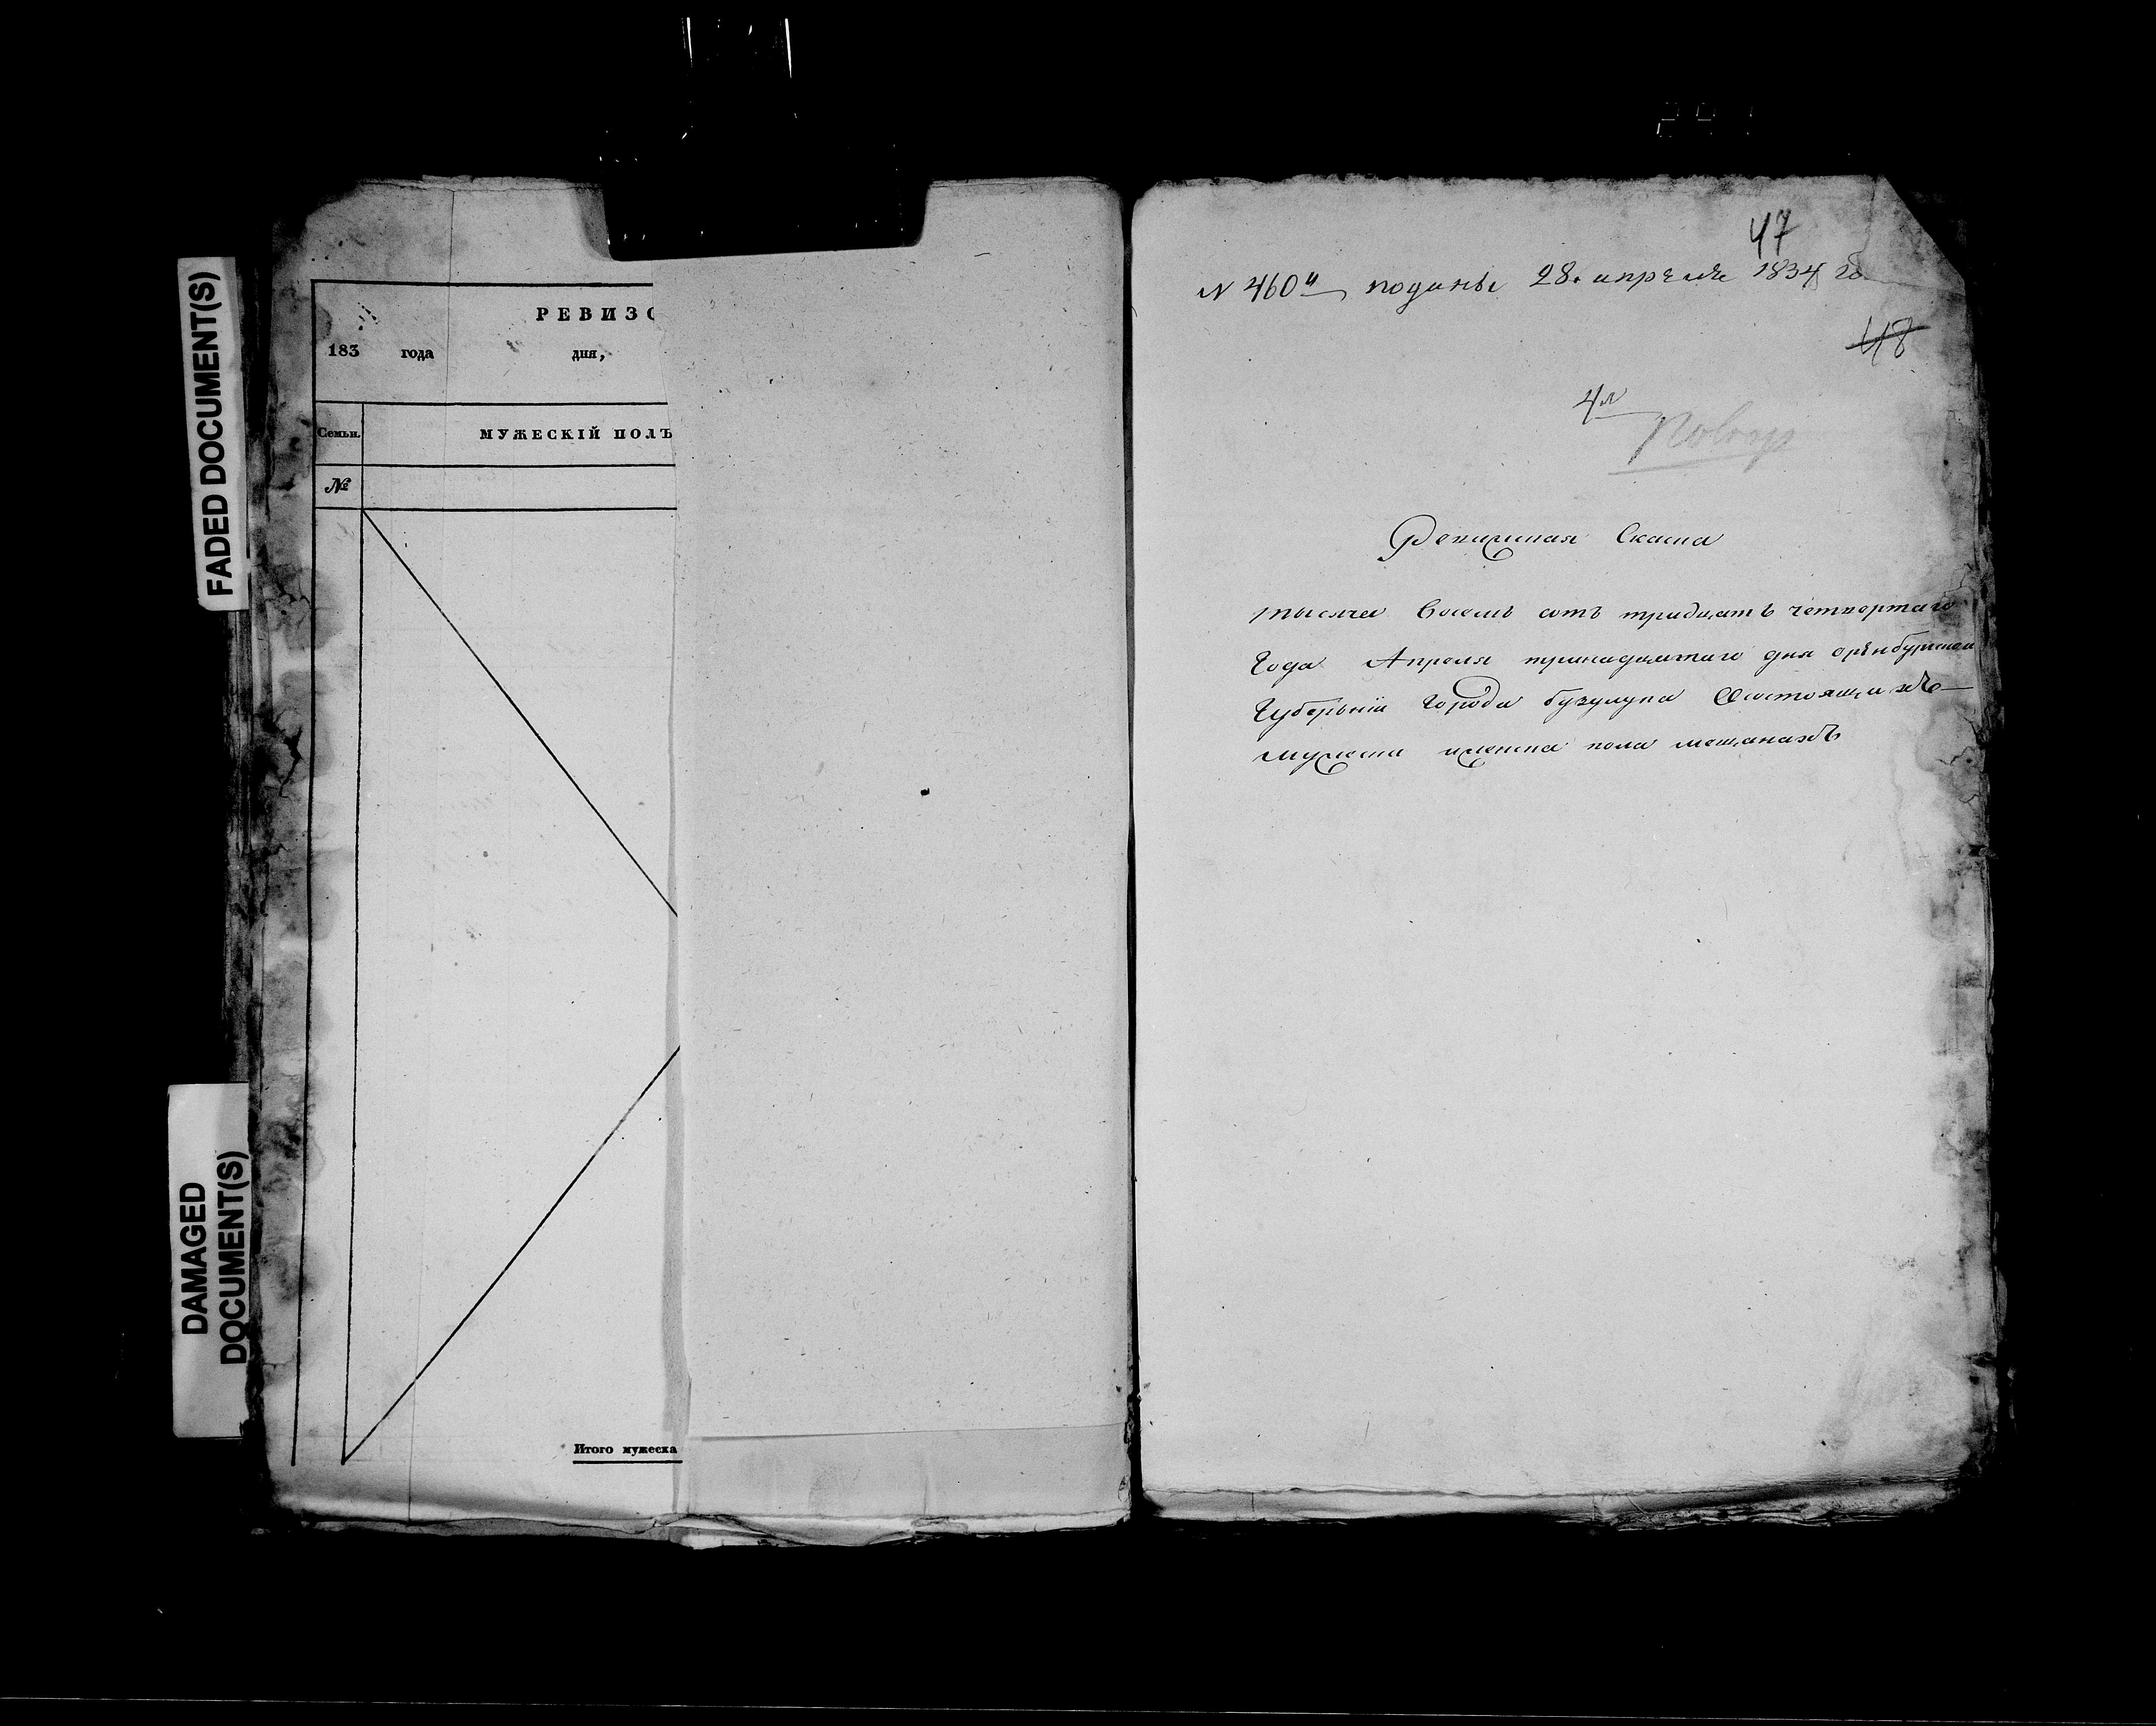 FADED DOCUMENT(S)
DAMAGED
DOCUMENT(S)
РЕВИЗО
183 года дня,
Семьи. МУЖЕСКІЙ ПОЛЪ
№
Итого мужеска
47
N 460й поданы 28. апреля 1834 го
48
4л
Ревизская Скаска
тысяча восемь сотъ тридцать четвертаго
Года Апреля тринадцатаго дня оренбургской
Губерніи Города бузулука Состоящихъ
мужеска иженска пола мещанахъ